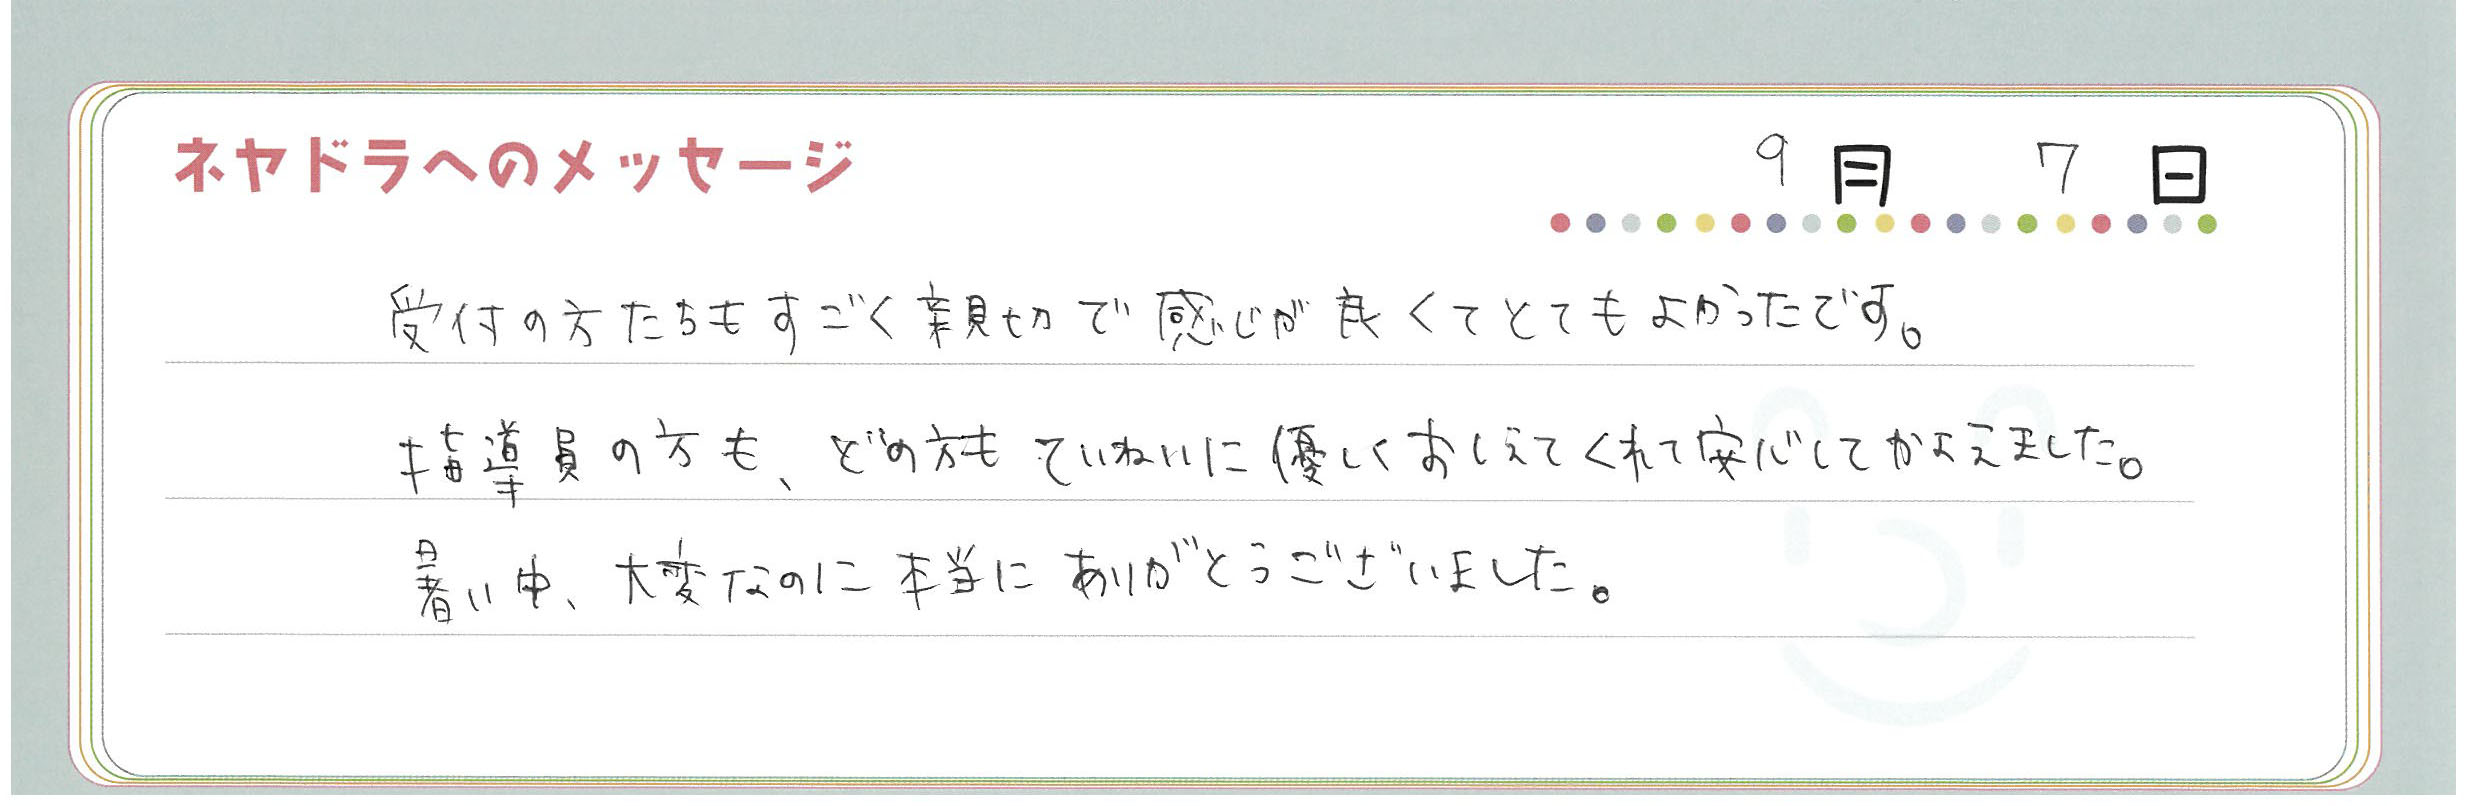 ネヤドラへのメッセージ 9月 7日
受付の方たちもすごく親切で感じが良くてとてもよかったです。
指導員の方も、どの方もていねいに優しくおしえてくれて安心してかよえました。
暑い中、大変なのに本当にありがとうございました。